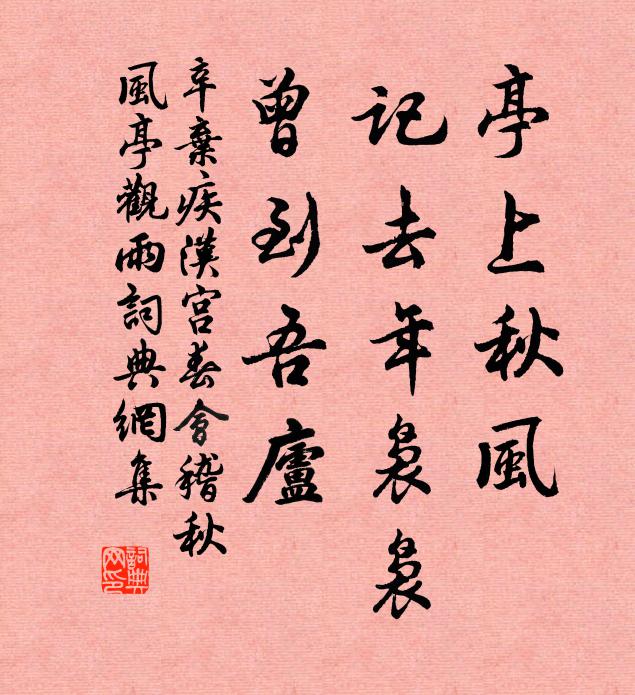 亭上秋風
記去年袅袅
曾到吾廬
辛棄疾漢宮春會稽秋
風亭觀雨詞典網集
詞典網印